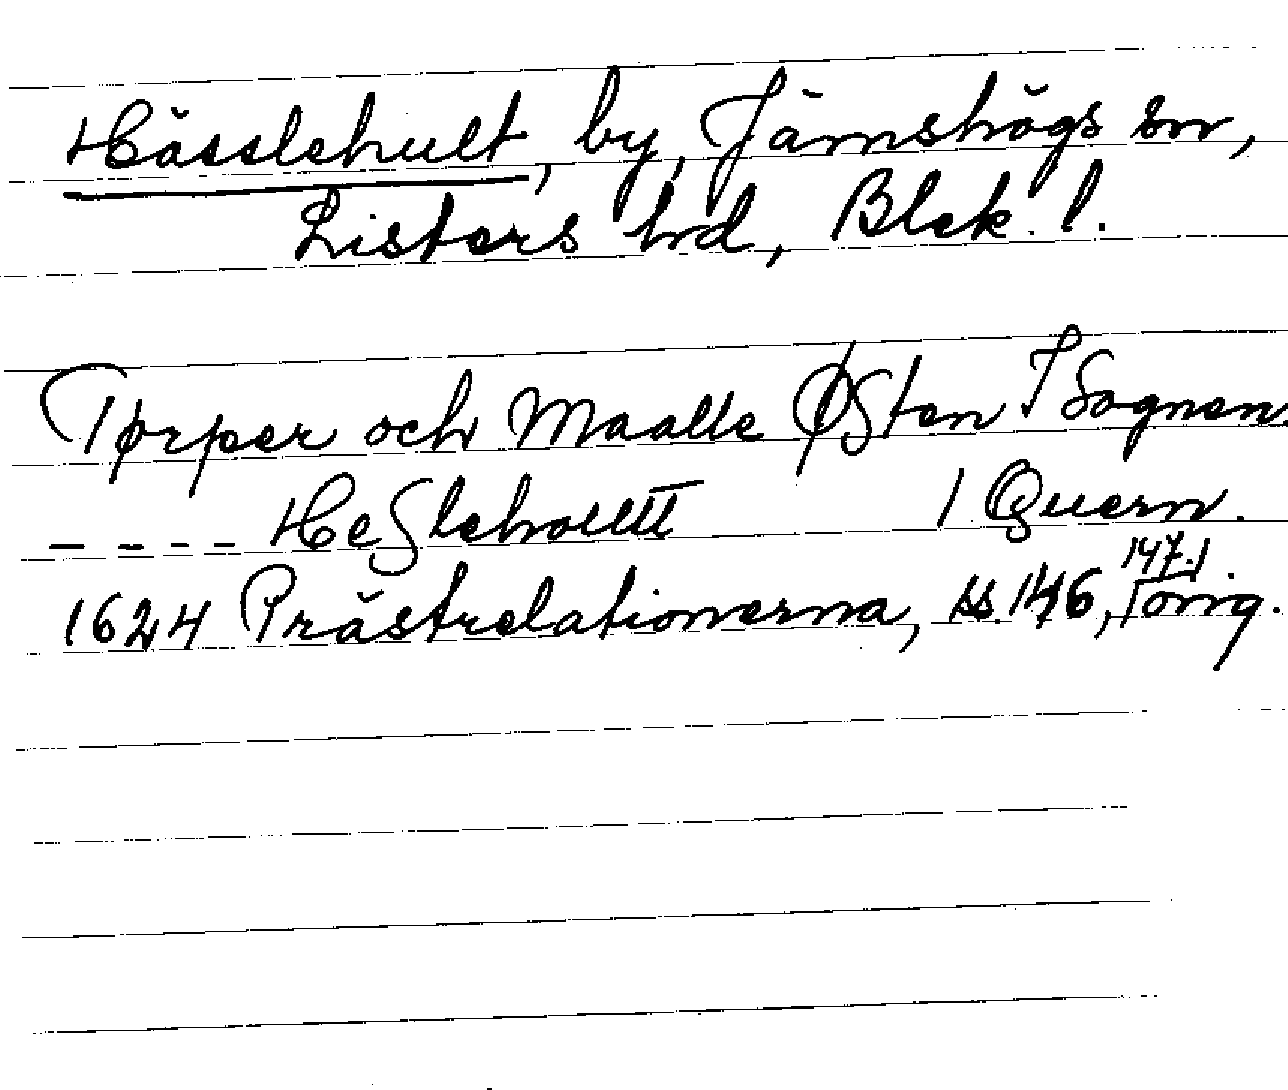 Hässlehult, by, Jämshögs sn,
Listers hd, Blek. l.
Tørper och Maalle ØSten I Sognen.
- - - - HeSlehollt 1 Quern.
1624 Prästrelationerna, ss. 146, 147. orig.